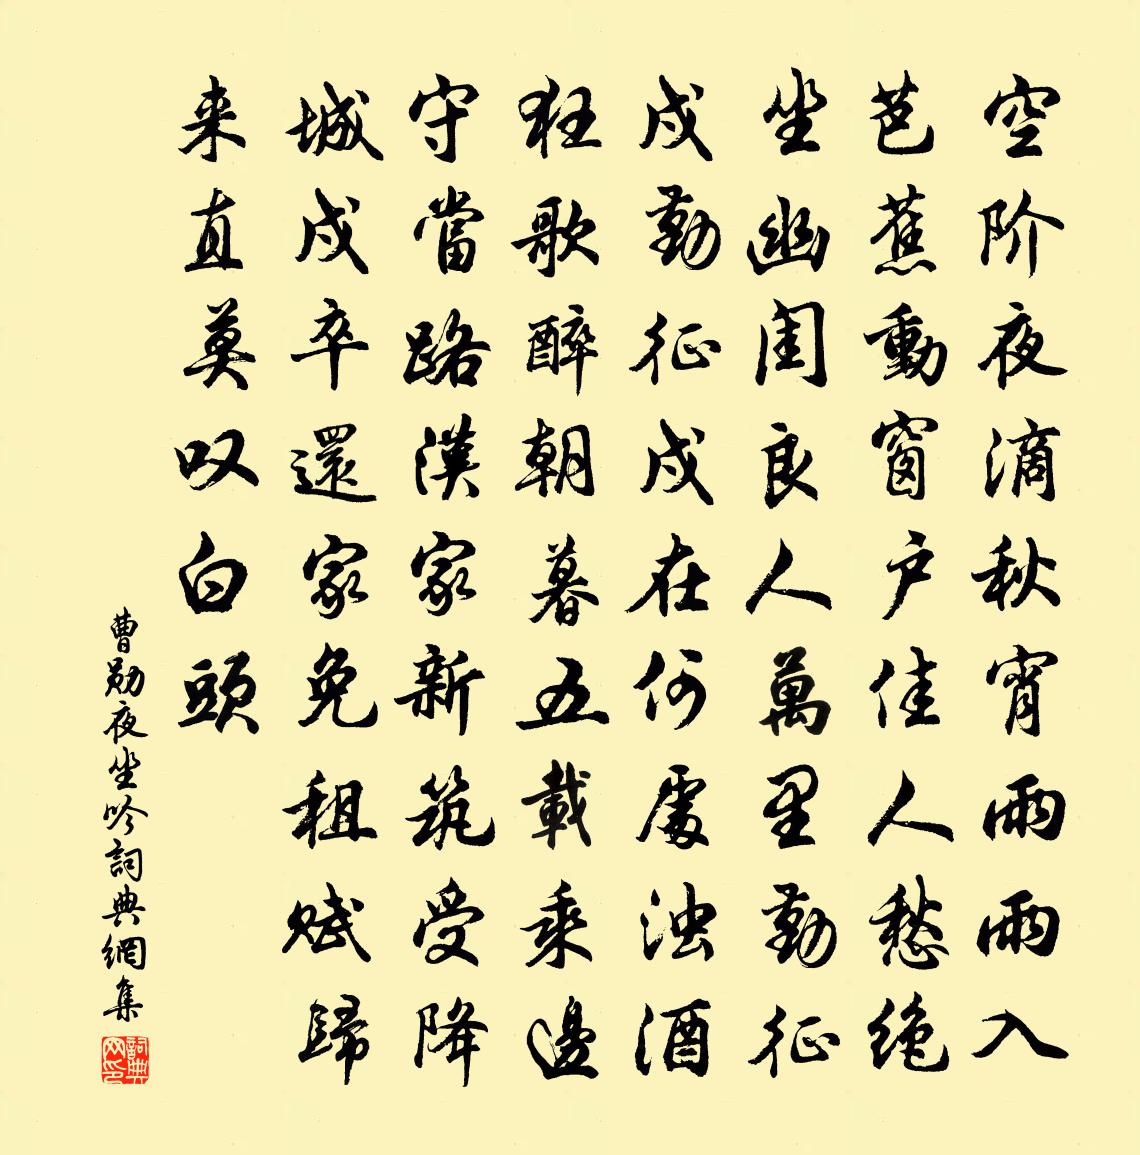 空阶夜滴秋宵雨雨入
芭蕉動窗户佳人愁绝
坐幽閨良人萬里勤征
戍勤征戍在何處浊酒
狂歌醉朝暮五載乘邊
守當路漢家新筑受降
城戍卒還家免租赋歸
来直莫叹白頭
曹勋夜坐吟詞典網集
詞典网印